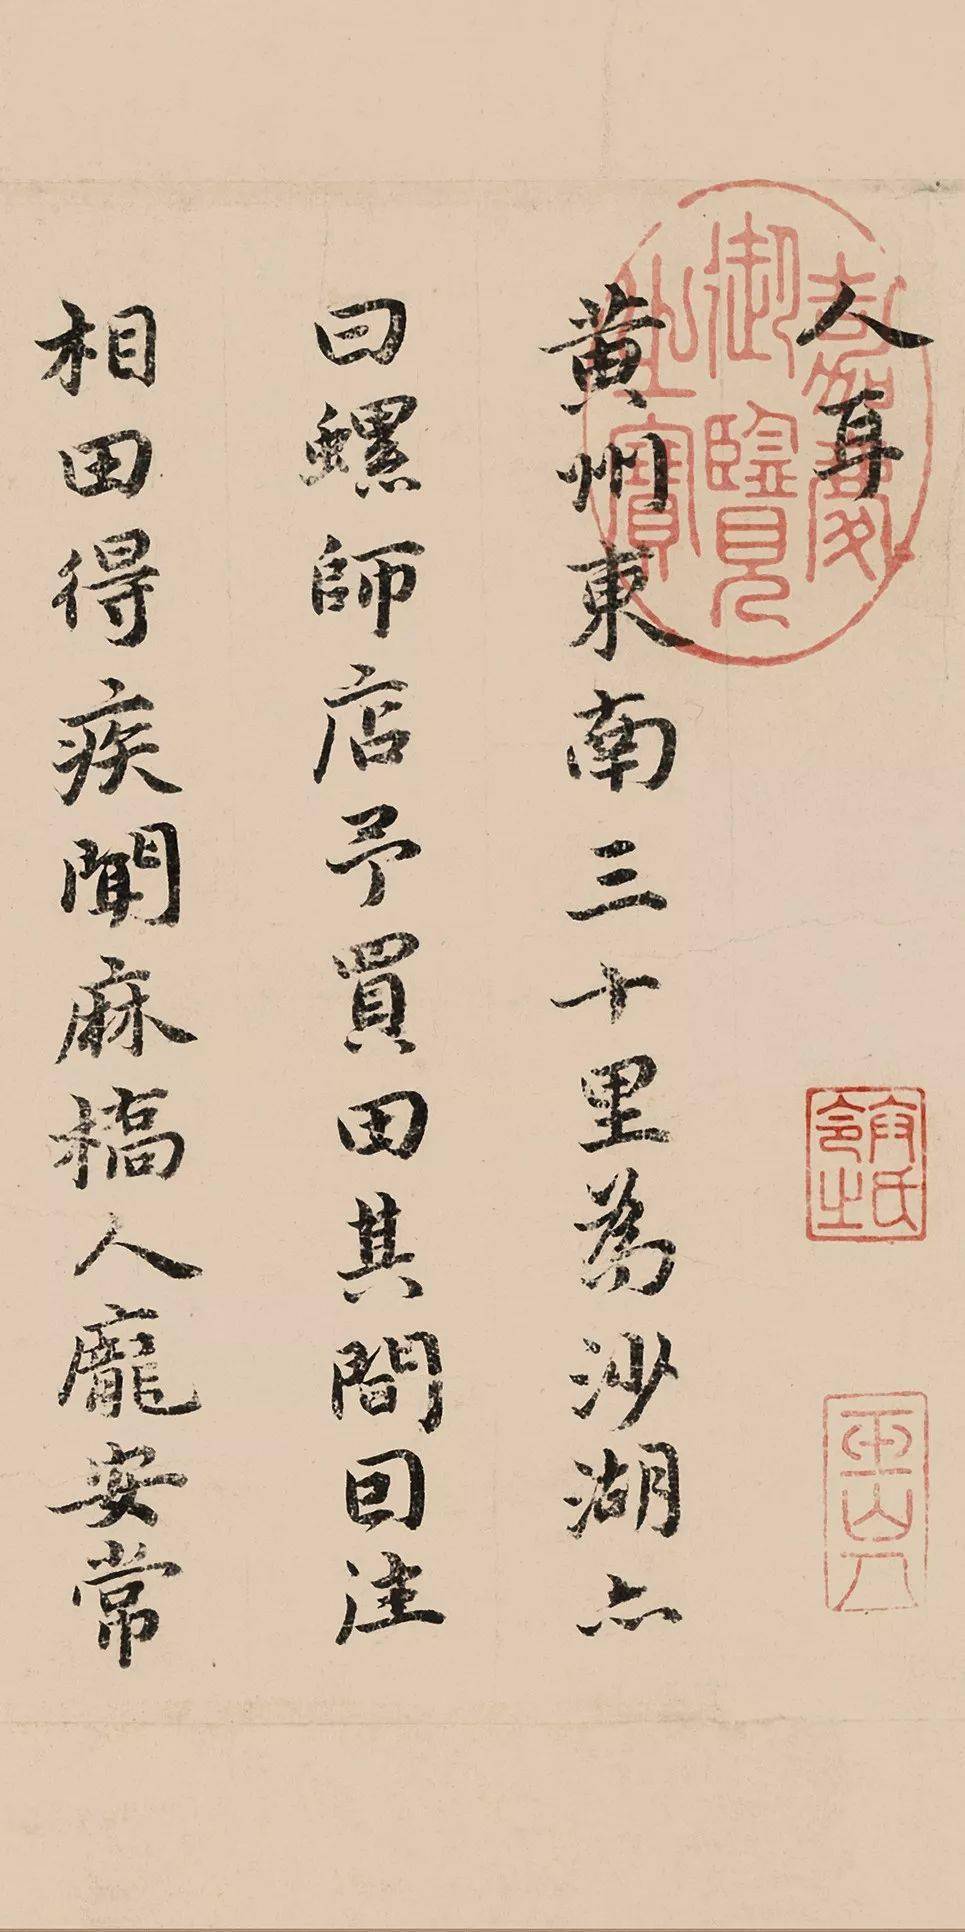 人耳
黄州東南三十里為沙湖亦
曰螺師店予買田其間囙往
相田得疾聞麻橋人龐安常
嘉慶
御覽
之寶